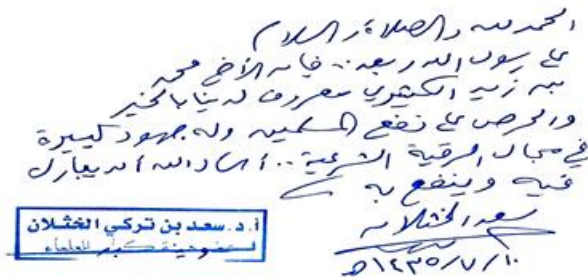 الحمد لله والصلاة والسلام
على رسول الله وبعد.. فإن الأخ محمد
بن زيد الكثيري معروف لدينا بالخير
والحرص على نفع المسلمين وله جهود كبيرة
في مجال الرقية الشرعية.. أسأل الله أن يبارك
فيه وينفع به
سعد الخثلان
١٤٣٥/٧/١٠هـ
أ.د. سعد بن تركي الخثلان
عضو هيئة كبار العلماء